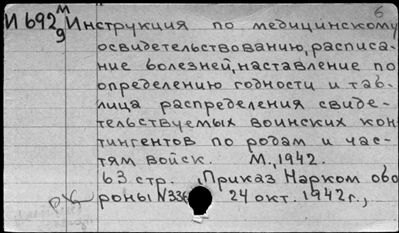 6
И 692 м/9 Инструкция по медицинскому
освидетельствованию, расписа-
ние болезней, наставление по
определению годности и таб-
лица распределения свиде-
тельствуемых воинских кон-
тингентов по родам и час-
тям войск. М., 1942.
63 стр. (Приказ Нарком обо
роны N336 24 окт. 1942г.,